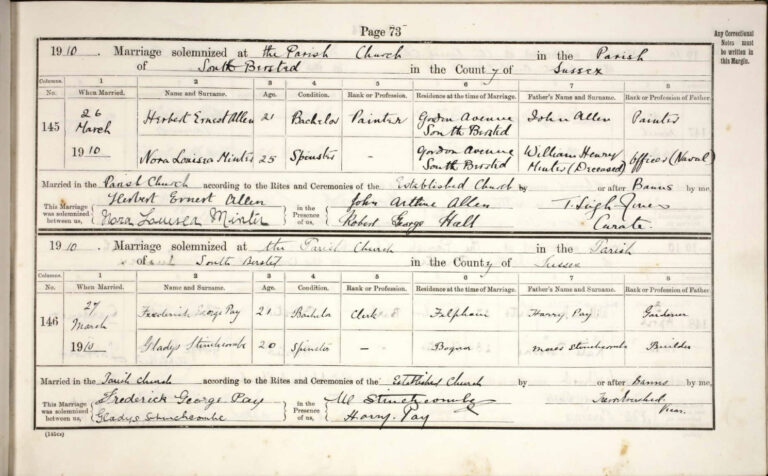 Page 73
Any Correctional
Notes must
be written in
this Margin.
1910. Marriage solemnized at the Parish Church in the Parish
of South Bersted in the County of Sussex
Columns. 1 2 3 4 5 6 7 8
No. When Married. Name and Surname. Age. Condition. Rank or Profession. Residence at the time of Marriage. Father's Name and Surname. Rank or Profession of Father.
145 26 March 1910 Herbert Ernest Allen 21 Bachelor Painter Gordon Avenue South Bersted John Allen Painter
Nora Louisa Minter 25 Spinster — Gordon Avenue South Bersted William Henry Minter (Deceased) Officer (Naval)
Married in the Parish Church according to the Rites and Ceremonies of the Established Church by or after Banns by me,
This Marriage was solemnized between us, Herbert Ernest Allen in the Presence of us, John Arthur Allen T. Leigh
Nora Louisa Minter Robert George Hall Curate.
1910. Marriage solemnized at the Parish Church in the Parish
of South Bersted in the County of Sussex
Columns. 1 2 3 4 5 6 7 8
No. When Married. Name and Surname. Age. Condition. Rank or Profession. Residence at the time of Marriage. Father's Name and Surname. Rank or Profession of Father.
146 27 March 1910 Frederick George Pay 21 Bachelor Clerk Felpham Harry Pay Gardener
Gladys Stinchcombe 20 Spinster — Bognor Moses Stinchcombe Builder
Married in the Parish Church according to the Rites and Ceremonies of the Established Church by or after Banns by me,
This Marriage was solemnized between us, Frederick George Pay in the Presence of us, M Stinchcombe
Gladys Stinchcombe Harry Pay Vicar.